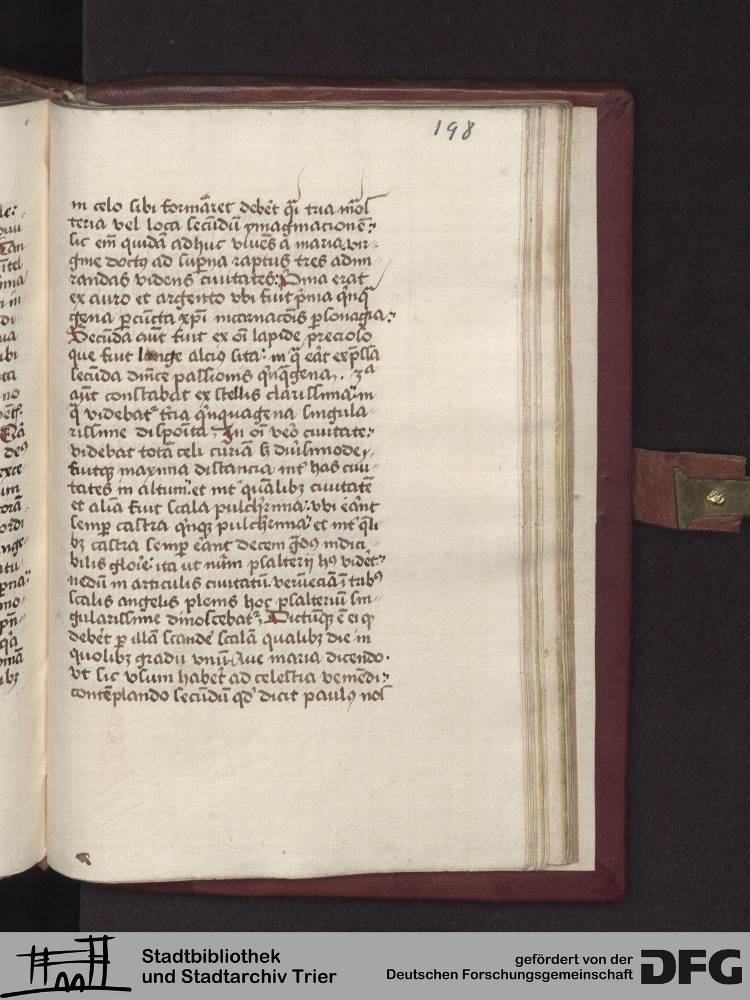 198
in celo sibi formaret debet q̄i tria mōl
teria vel loca secūdū ymaginacionē:
sic em̄ quidā adhuc viuēs a maria vir-
gine doctꝰ ad supna raptus tres admi-
randas videns ciuitates: Pīma erat
ex auro et argento vbi fuit pīma q̄nq̄
gena p cūcta xpi incarnacōis psonagia:
Secūda aūt fuit ex oī lapide precioso
que fuit longe alciꝰ sita: in q̄ eāt expssa
secūda dnice passionis q̄nq̄gena. 3ᵃ
aūt constabat ex stellis clarissima: in
q̄ videbat tria q̄nquagena singula-
rissime disposita. In oī vero ciuitate:
videbat totā celi curiā ſ diuſimode,
fuitqꝫ maxima distancia int has ciui-
tates in altum: et int qualibꝫ ciuitatē
et aliā fuit scala pulchrima: vbi eāt
semp castra q̄nqꝫ pulcherrima: et int qli
bꝫ castra semp eāt decem gdꝰ indici-
bilis gloie: ita ut nūm psalterij hꝰ videt:
nedū in articulis ciuitatū. verūeciā ī tribꝰ
scalis angelis plenis hoc psalteriū sin-
gularissime dinoscebat: Dictūqꝫ ē ei q
debet p illā scande scalā qualibꝫ die in
quolibꝫ gradu vnū Aue maria dicendo.
vt sic vsum haber ad celestia veniēdi:
contēplando secūdū qd dicit paulꝰ nol
Stadtbibliothek
und Stadtarchiv Trier
gefördert von der
Deutschen Forschungsgemeinschaft
DFG